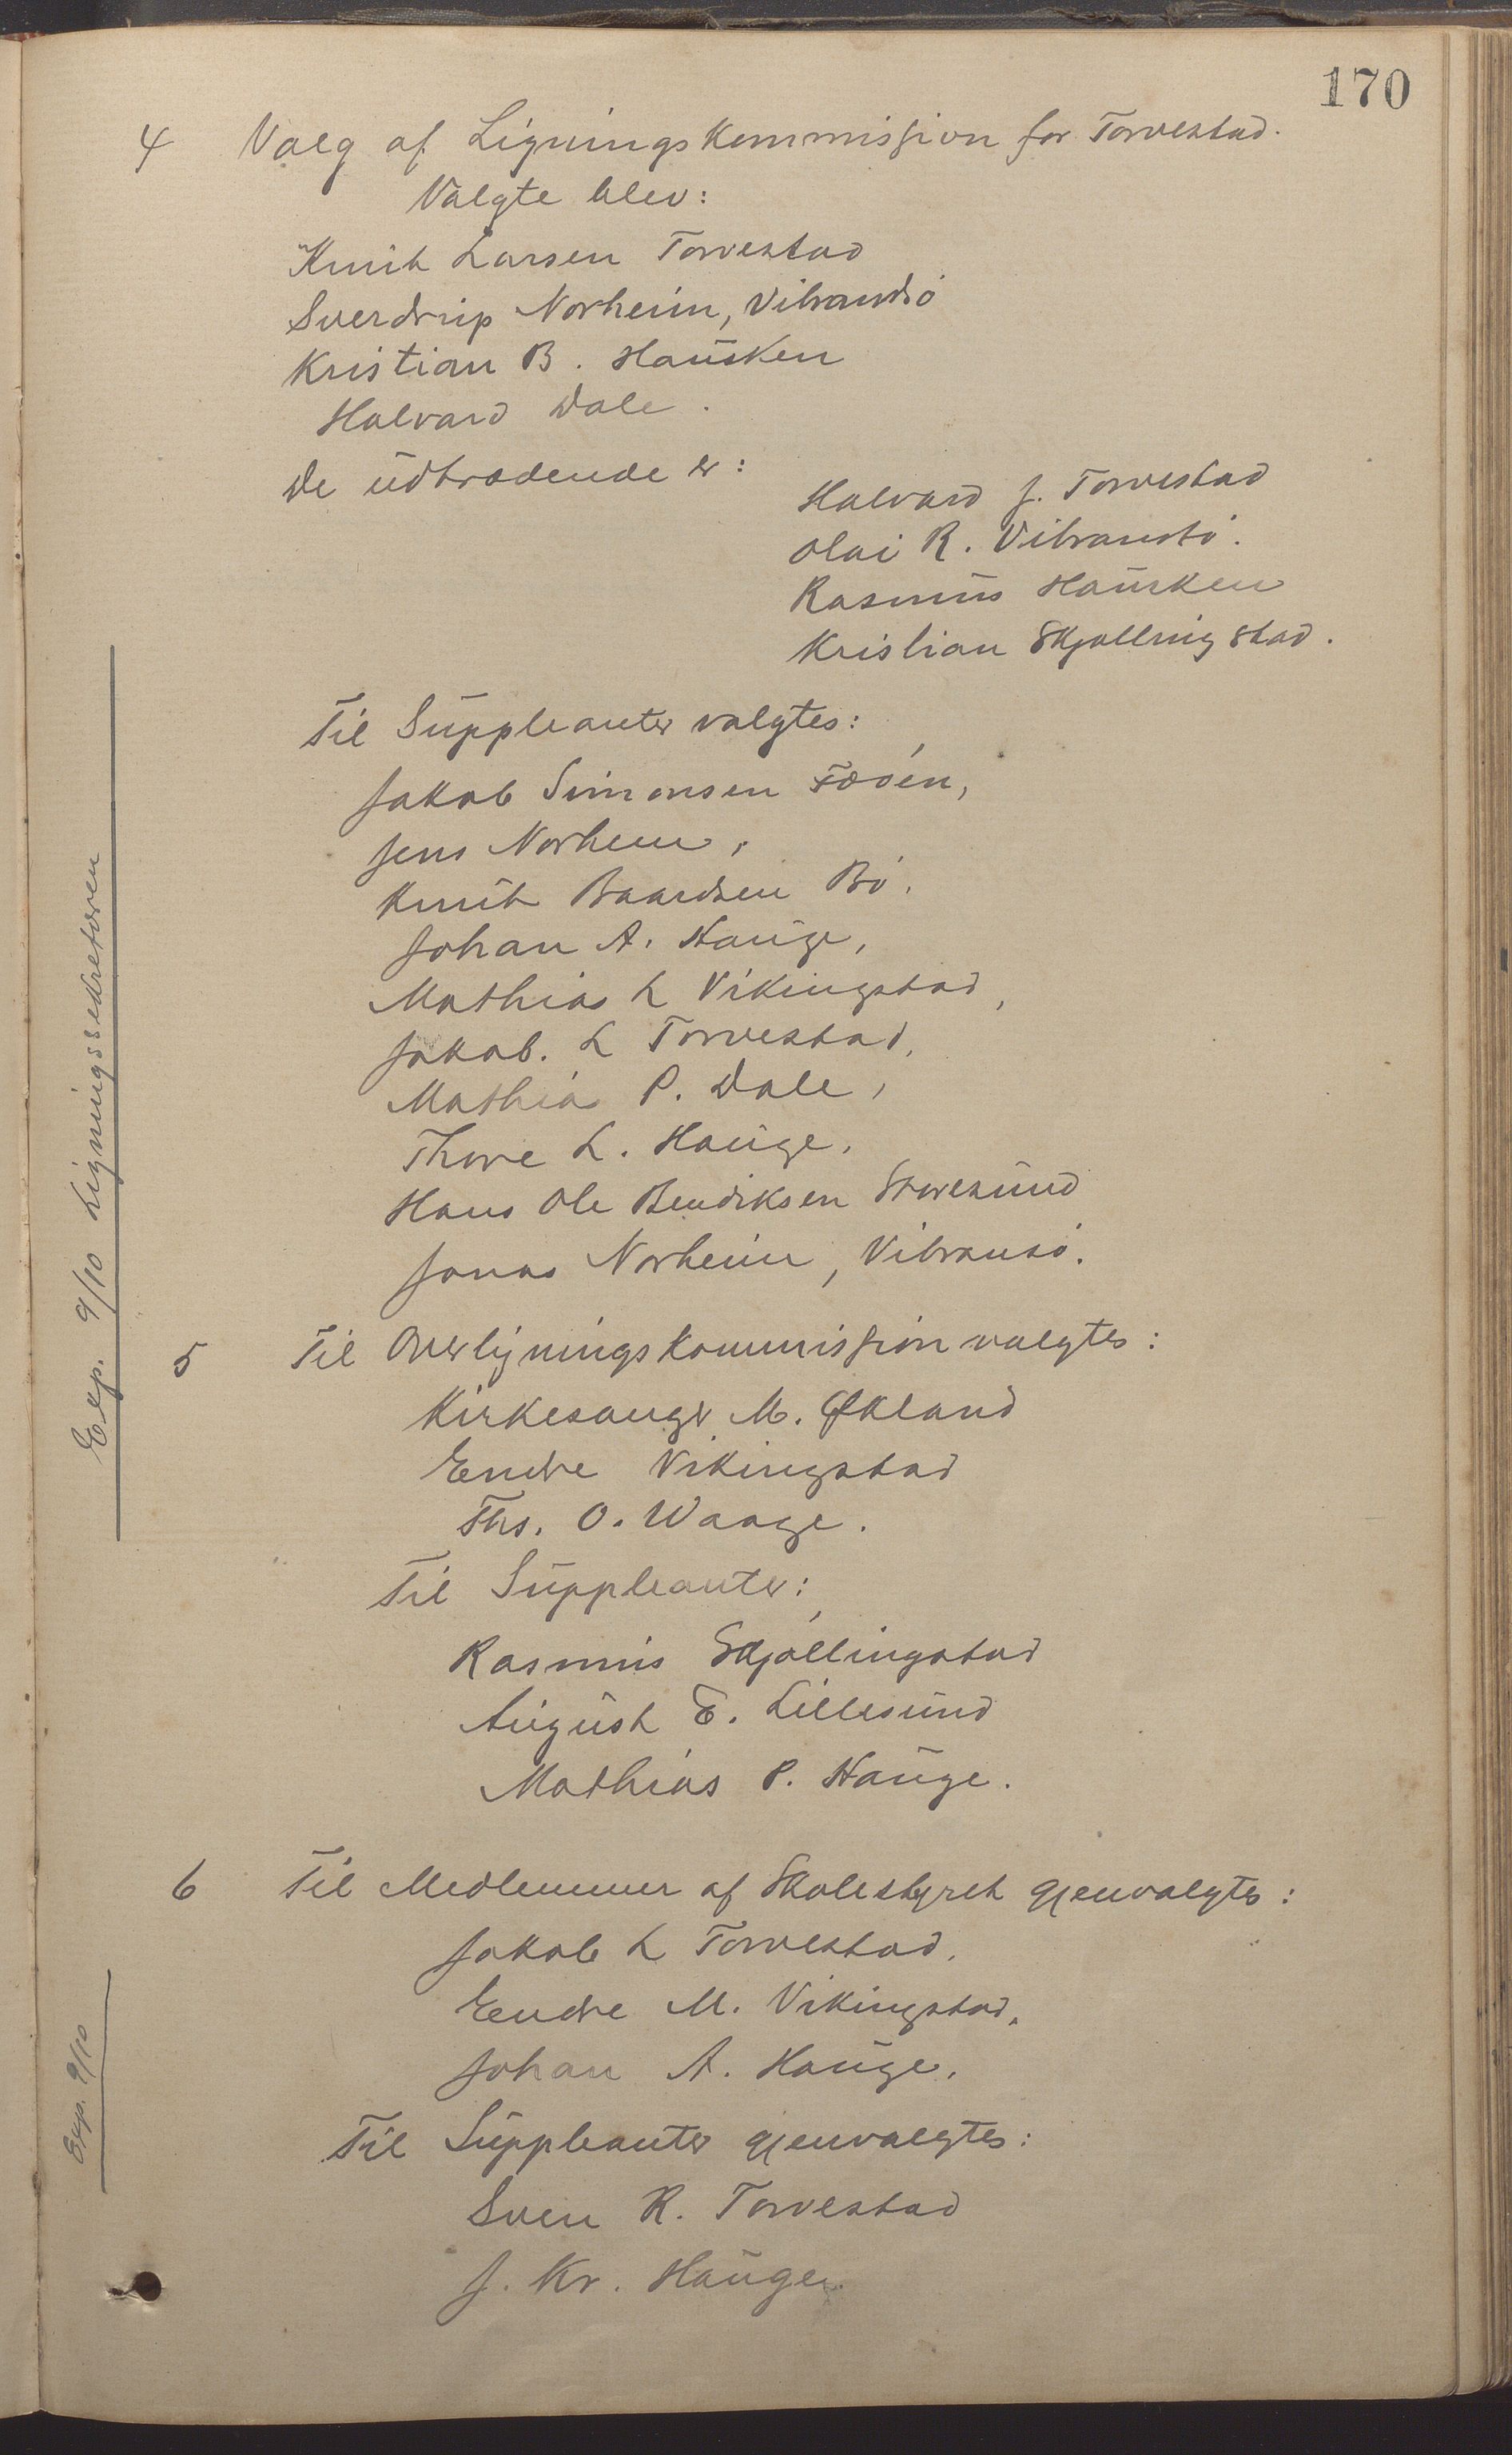 170
4 Valg af Ligningskommission for Torvestad.
Valgte blev:
Knut Larsen Torvestad
Sverdrup Norheim, Vibrandsö
Kristian B. Hausken
Halvard Dale.
De udtrædende er:
Halvard J. Torvestad
Olai R. Vibrandsö.
Rasmus Hausken
Kristian Skjølingstad.
Til Suppleanter valgtes:
Jakob Simonsen Fæøen,
Jens Norheim,
Knut Baardsen Bö,
Johan A. Hauge,
Mathias L Vikingstad,
Jakob. L Torvestad,
Mathias P. Dale,
Thore L. Hauge,
Hans Ole Bendiksen Storesund
Jonas Norheim, Vibransö.
5 Til Overligningskommission valgtes:
Kirkesanger M. Økland
Endre Vikingstad
Ths. O. Waage.
Til Suppleanter:
Rasmus Skjöllingstad
August E. Lillesund
Mathias P. Hauge.
6 Til Medlemmer af Skolestyret gjenvalgtes:
Jakob L Torvestad,
Endre M. Vikingstad,
Johan A. Hauge,
Til Suppleanter gjenvalgtes:
Sven R. Torvestad
J. Kr. Hauge.
Exp. 9/10 Ligningssekretæren
Exp. 9/10